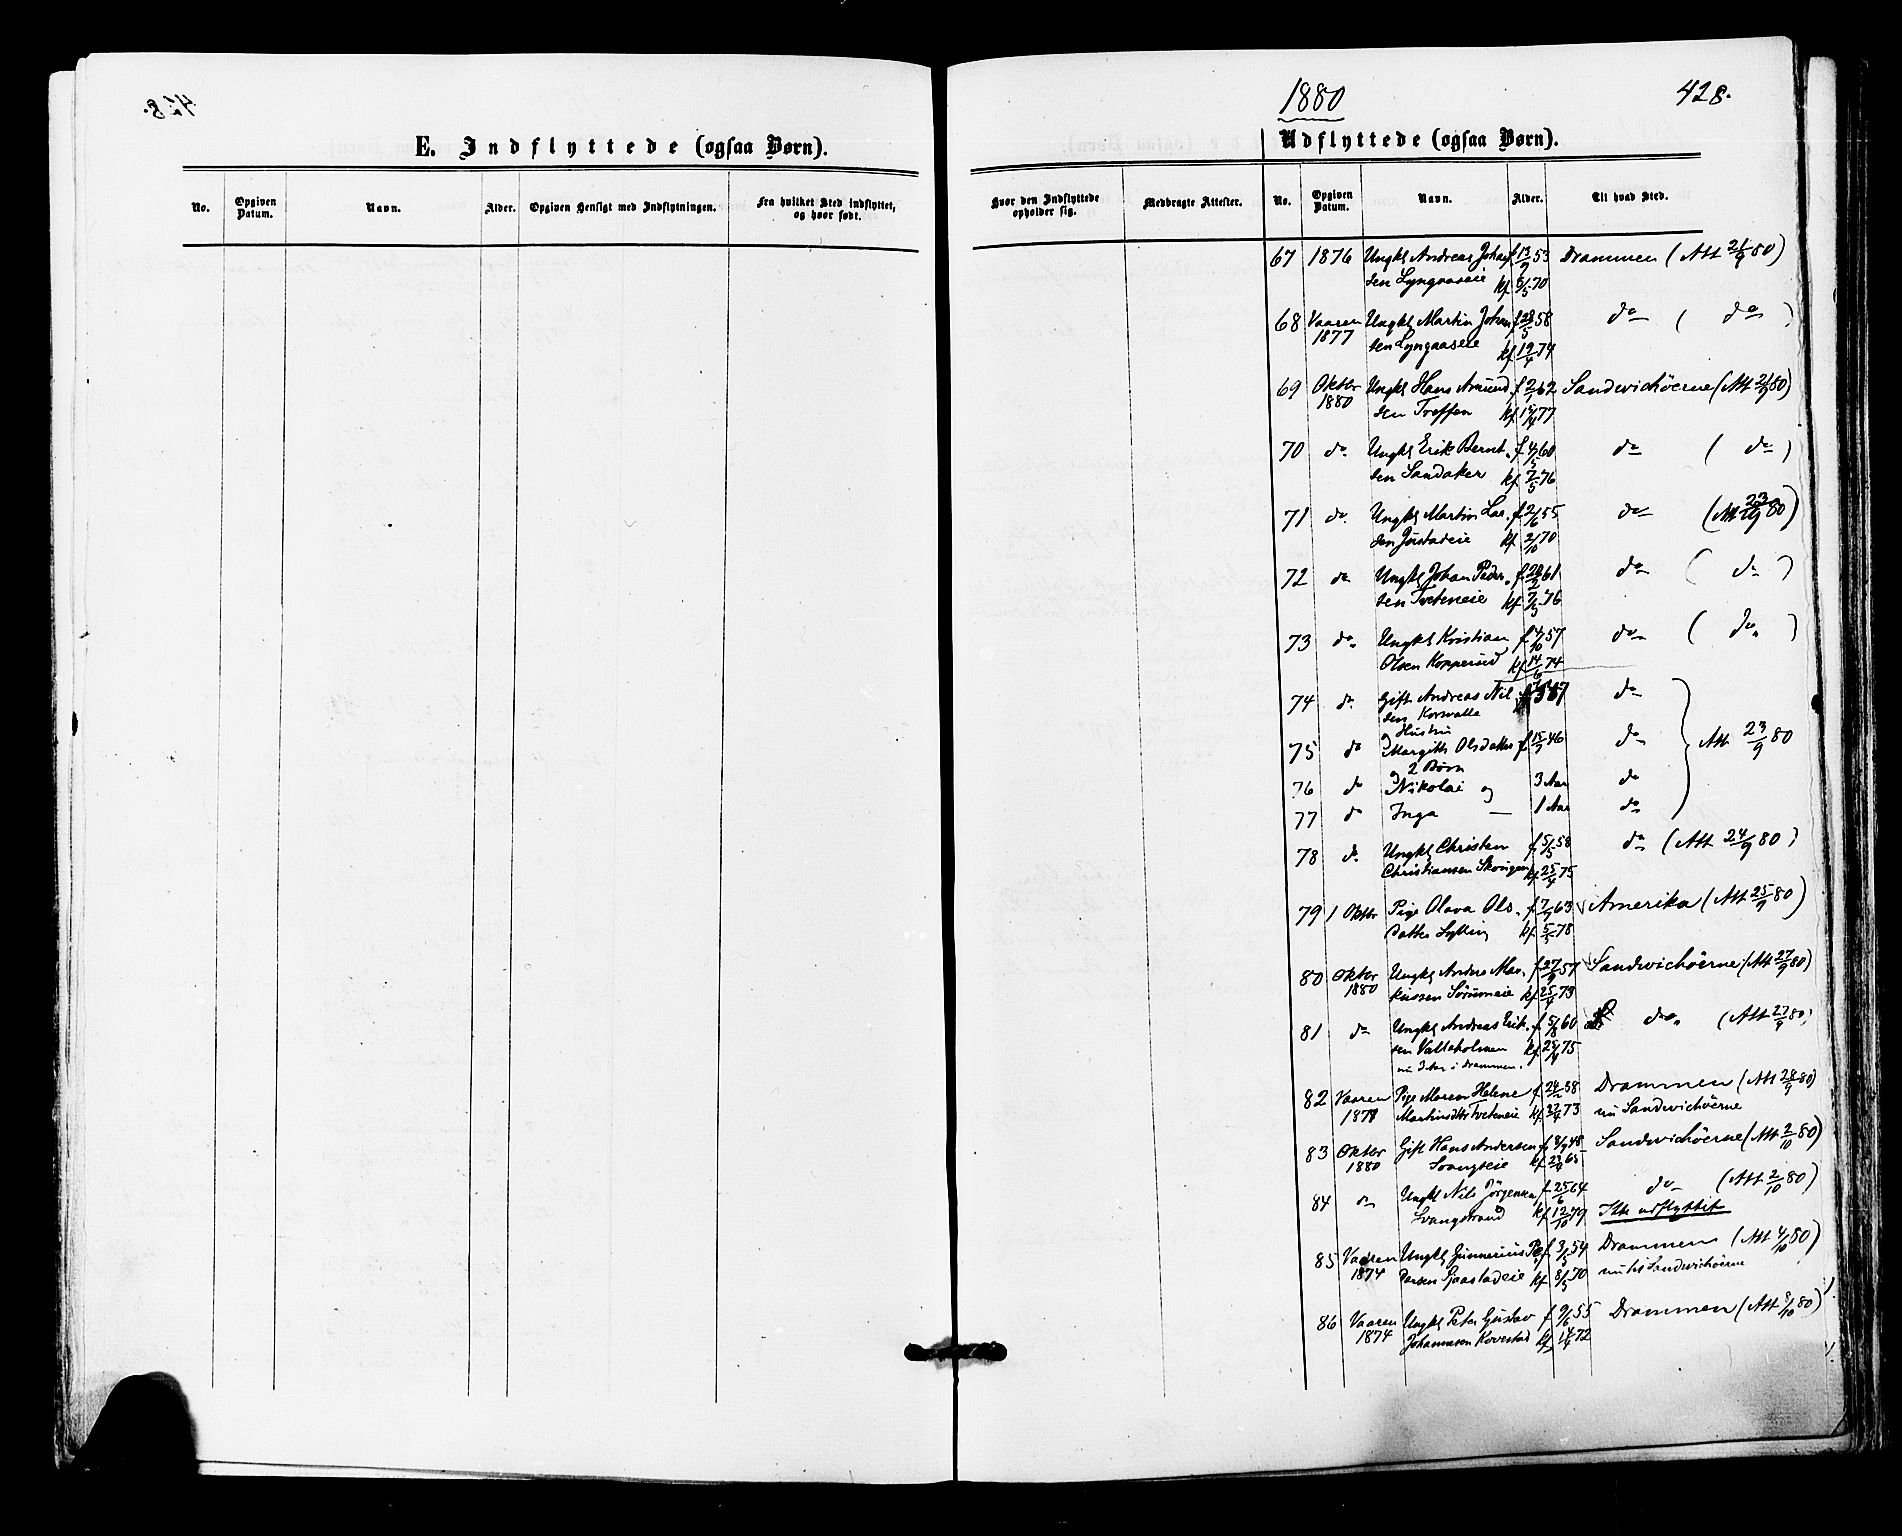 1880
428.
E. Indflyttede (ogsaa Børn).
Udflyttede (ogsaa Børn).
No.
Opgiven Datum.
Navn.
Alder.
Opgiven Hensigt med Indflytningen.
Fra hvilket Sted indflyttet, og hvor født.
Hvor den Indflyttede opholder sig.
Medbragte Attester.
No.
Opgiven Datum.
Navn.
Alder.
Til hvad Sted.
67 1876 Ungkl Andreas Johan f 13/9 53 Drammen (Att 21/9 80)
sen Lyngaaseie kf 5/5 70
68 Vaaren Ungkl Martin Johan f 28/5 58 do ( do )
1877 sen Lyngaaseie kf 19/4 74
69 Oktbr Ungkl Hans Amund f 2/1 62 Sandwichöerne (Att 21/9 80)
1880 sen Treffen kf 77
70 do Ungkl Erik Bernt f 60 do ( do )
sen Sandaker kf 7/5 76
71 do. Ungkl Martin Lar f 2/6 55 do (Att 80)
sen Justadeie kf 2/10 70
72 do Ungkl Johan Peder f 61 do ( do )
sen Tveteneie kf 7/5 76
73 do Ungkl Kristian f 4/10 57 do ( do )
Olsen Kopperud kf 14/6 74
74 do. Gift Andreas Nil do
sen Korsvalla
og Hustru
75 do Margith Olsdatter f 15/7 46 do Att 23/9 80
og 2 Børn
76 do Nikolai og 3 Aar do
77 do Inga — 1 Aar do
78 do. Ungkl Christen f 5/5 58 do (Att 24/9 80)
Christiansen kf 25/4 75
79 1 Oktbr Pige Olava Ols. f 7/9 63 Amerika (Att 25/9 80)
datter Sylling kf 5/5 78
80 Oktbr Ungkl Anders Mar. f 27/9 57 Sandwichöerne (Att 27/9 80)
1880 kussen Sörumeie kf 25/4 73
81 do Ungkl Andreas Erik. f 5/8 60 do. (Att 27/9 80)
sen Valleholmen kf 25/4 75
nu i Drammen.
82 Vaaren Pige Maren Helene f 24/2 58 Drammen (Att 28/9 80)
1878 Martinsdtr Tveteneie kf 27/4 73 nu Sandwichöerne
83 Oktbr Gift Hans Andersen f 8/9 48 Sandwichöerne (Att 2/10 80)
1880 Svangseie kf 65
84 do Ungkl Nils Jörgensen f 25/6 64 do (Att 2/10 80)
Svangstrand kf 12/10 79 Ikke udflyttet
85 Vaaren Ungkl Gunnerius Pe f 3/5 54 Drammen (Att 4/10 80)
1874 dersen Gjaastadeie kf 8/5 70 nu til Sandwichöerne
86 Vaaren Ungkl Peter Gustav f 9/6 55 Drammen (Att 8/10 80)
1874 Johannesen Kovestad kf 14/4 72